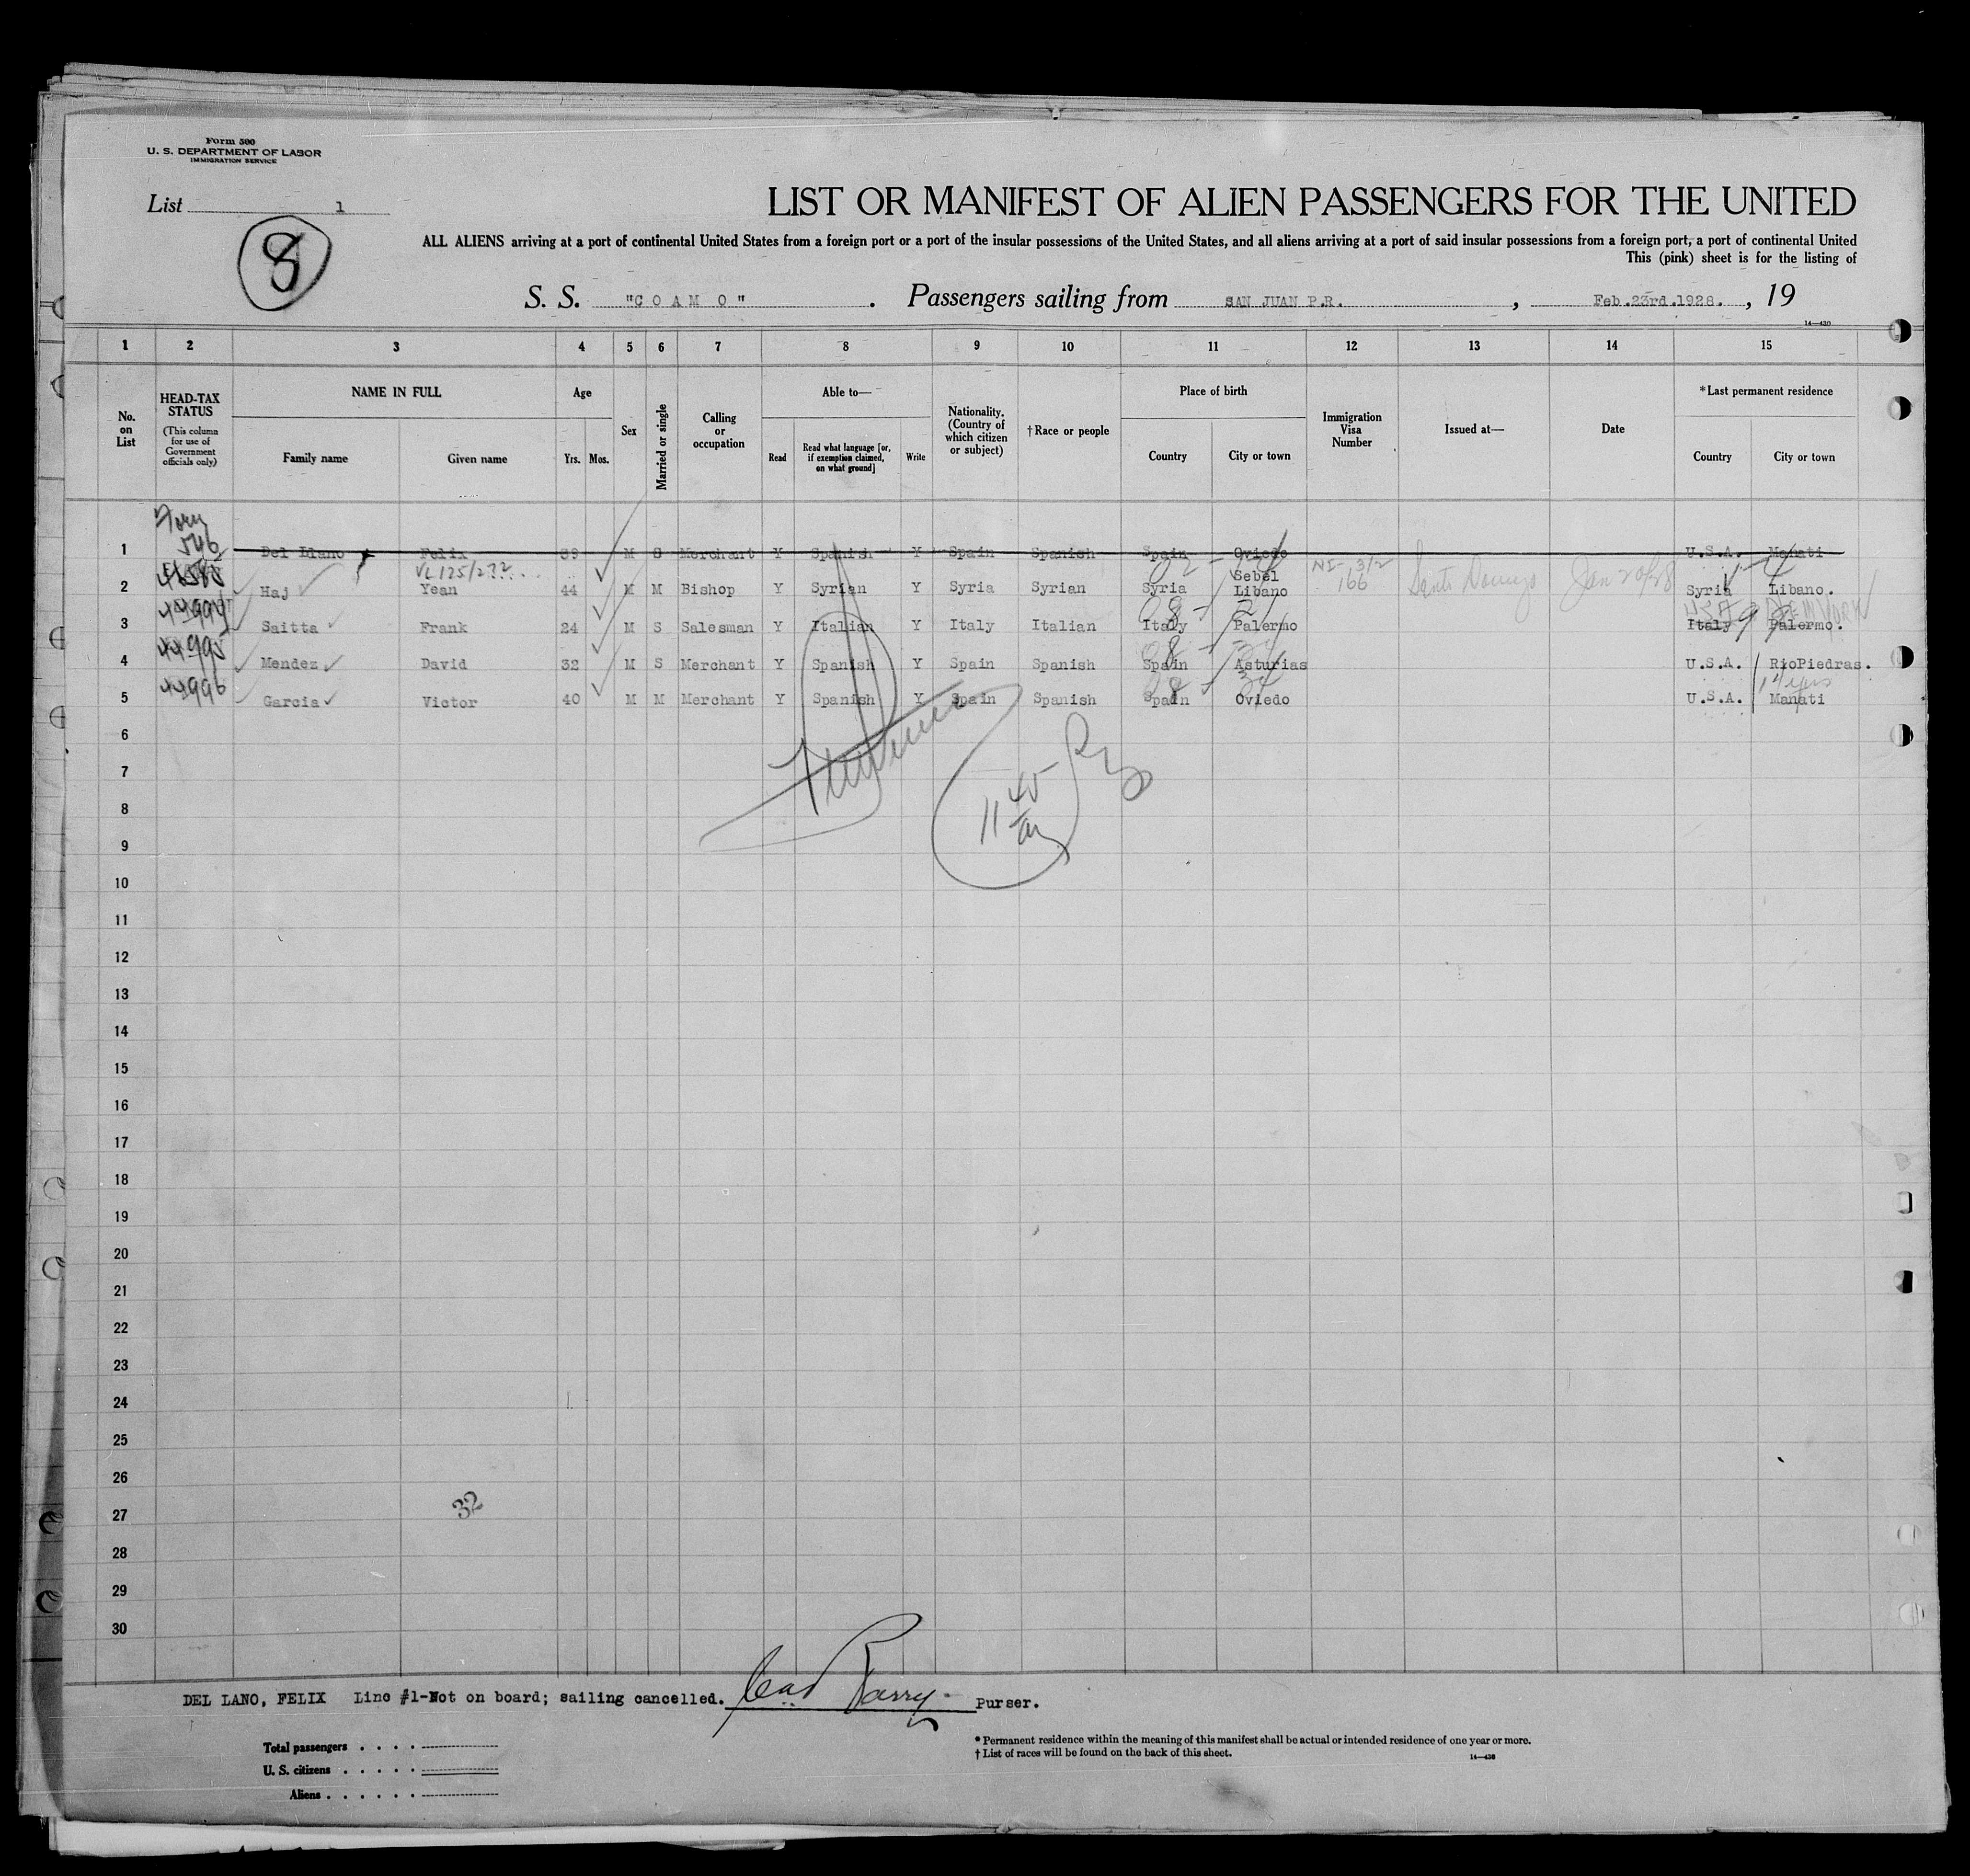 Form 500
U. S. DEPARTMENT OF LABOR
IMMIGRATION SERVICE
List 1
8
LIST OR MANIFEST OF ALIEN PASSENGERS FOR THE UNITED
ALL ALIENS arriving at a port of continental United States from a foreign port or a port of the insular possessions of the United States, and all aliens arriving at a port of said insular possessions from a foreign port, a port of continental United
This (pink) sheet is for the listing of
S. S. "C O A M O" . Passengers sailing from SAN JUAN P.R. , Feb.23rd.1928. , 19
14—430
1 2 3 4 5 6 7 8 9 10 11 12 13 14 15
No. on List
HEAD-TAX STATUS
(This column for use of Government officials only)
NAME IN FULL
Family name Given name
Age
Yrs. Mos.
Sex
Married or single
Calling or occupation
Able to—
Read
Read what language [or, if exemption claimed, on what ground]
Write
Nationality. (Country of which citizen or subject)
†Race or people
Place of birth
Country City or town
Immigration Visa Number
Issued at—
Date
*Last permanent residence
Country City or town
546
1 Del Llano Felix 39 M S Merchant Y Spanish Y Spain Spanish Spain Oviedo U.S.A. Manati
2 Haj Yean 44 M M Bishop Y Syrian Y Syria Syrian Syria Sebel Libano 166 Santo Domingo Jan 20/28 Syria Libano.
44994
USA NEW YORK
3 Saitta Frank 24 M S Salesman Y Italian Y Italy Italian Italy Palermo Italy Palermo.
44995
4 Mendez David 32 M S Merchant Y Spanish Y Spain Spanish Spain Asturias U.S.A. RioPiedras.
44996
14 yrs
5 Garcia Victor 40 M M Merchant Y Spanish Y Spain Spanish Spain Oviedo U.S.A. Manati
6
7
11 45 am
8
9
10
11
12
13
14
15
16
17
18
19
20
21
22
23
24
25
26
27
32
28
29
30
DEL LANO, FELIX Line #1-Not on board; sailing cancelled. Barry Purser.
Total passengers
U. S. citizens
Aliens
* Permanent residence within the meaning of this manifest shall be actual or intended residence of one year or more.
† List of races will be found on the back of this sheet.
14—430